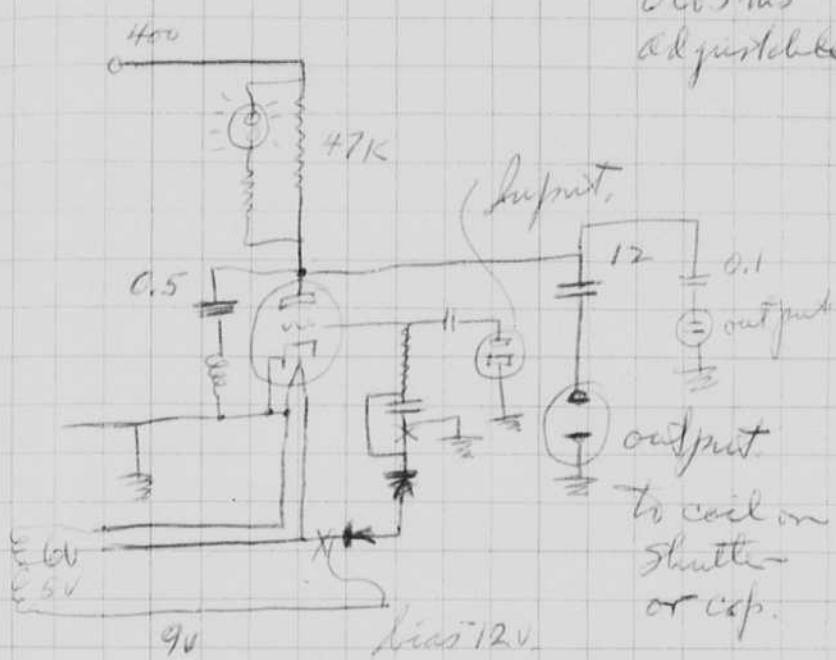 adjustable
400
47K
Input.
0.5
12
0.1
output
output.
to coil on
Shutter
or cap.
6V
5V
9v
bias 12v.